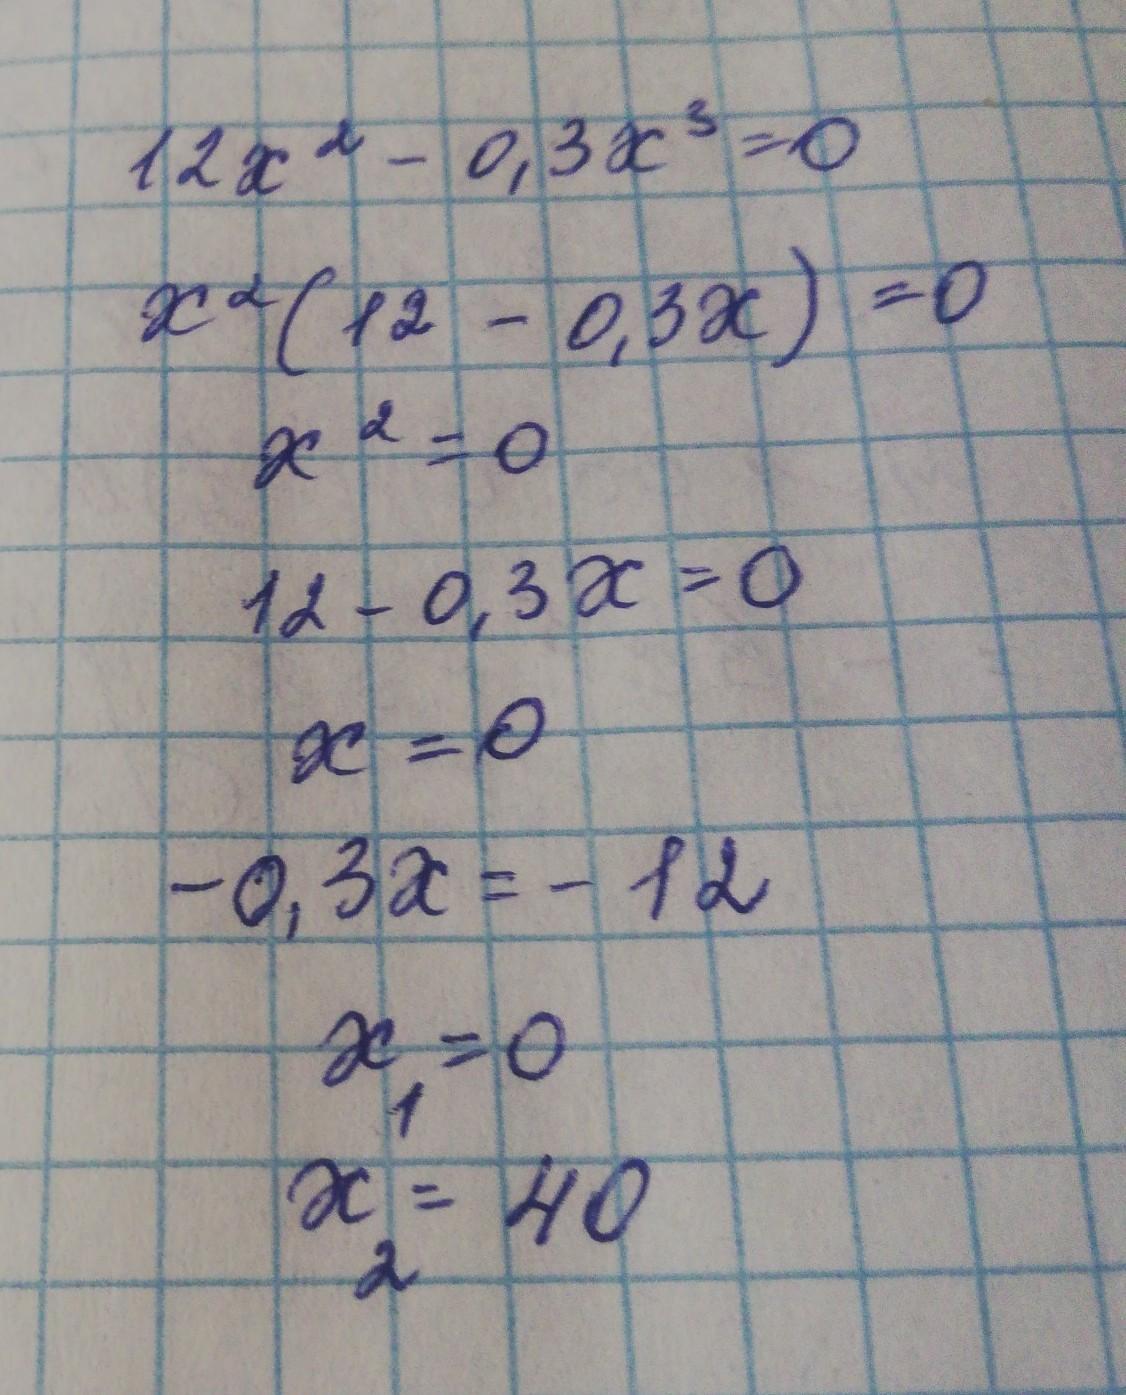 12x² - 0,3x³ = 0
x²(12 - 0,3x) = 0
x² = 0
12 - 0,3x = 0
x = 0
-0,3x = -12
x₁ = 0
x₂ = 40